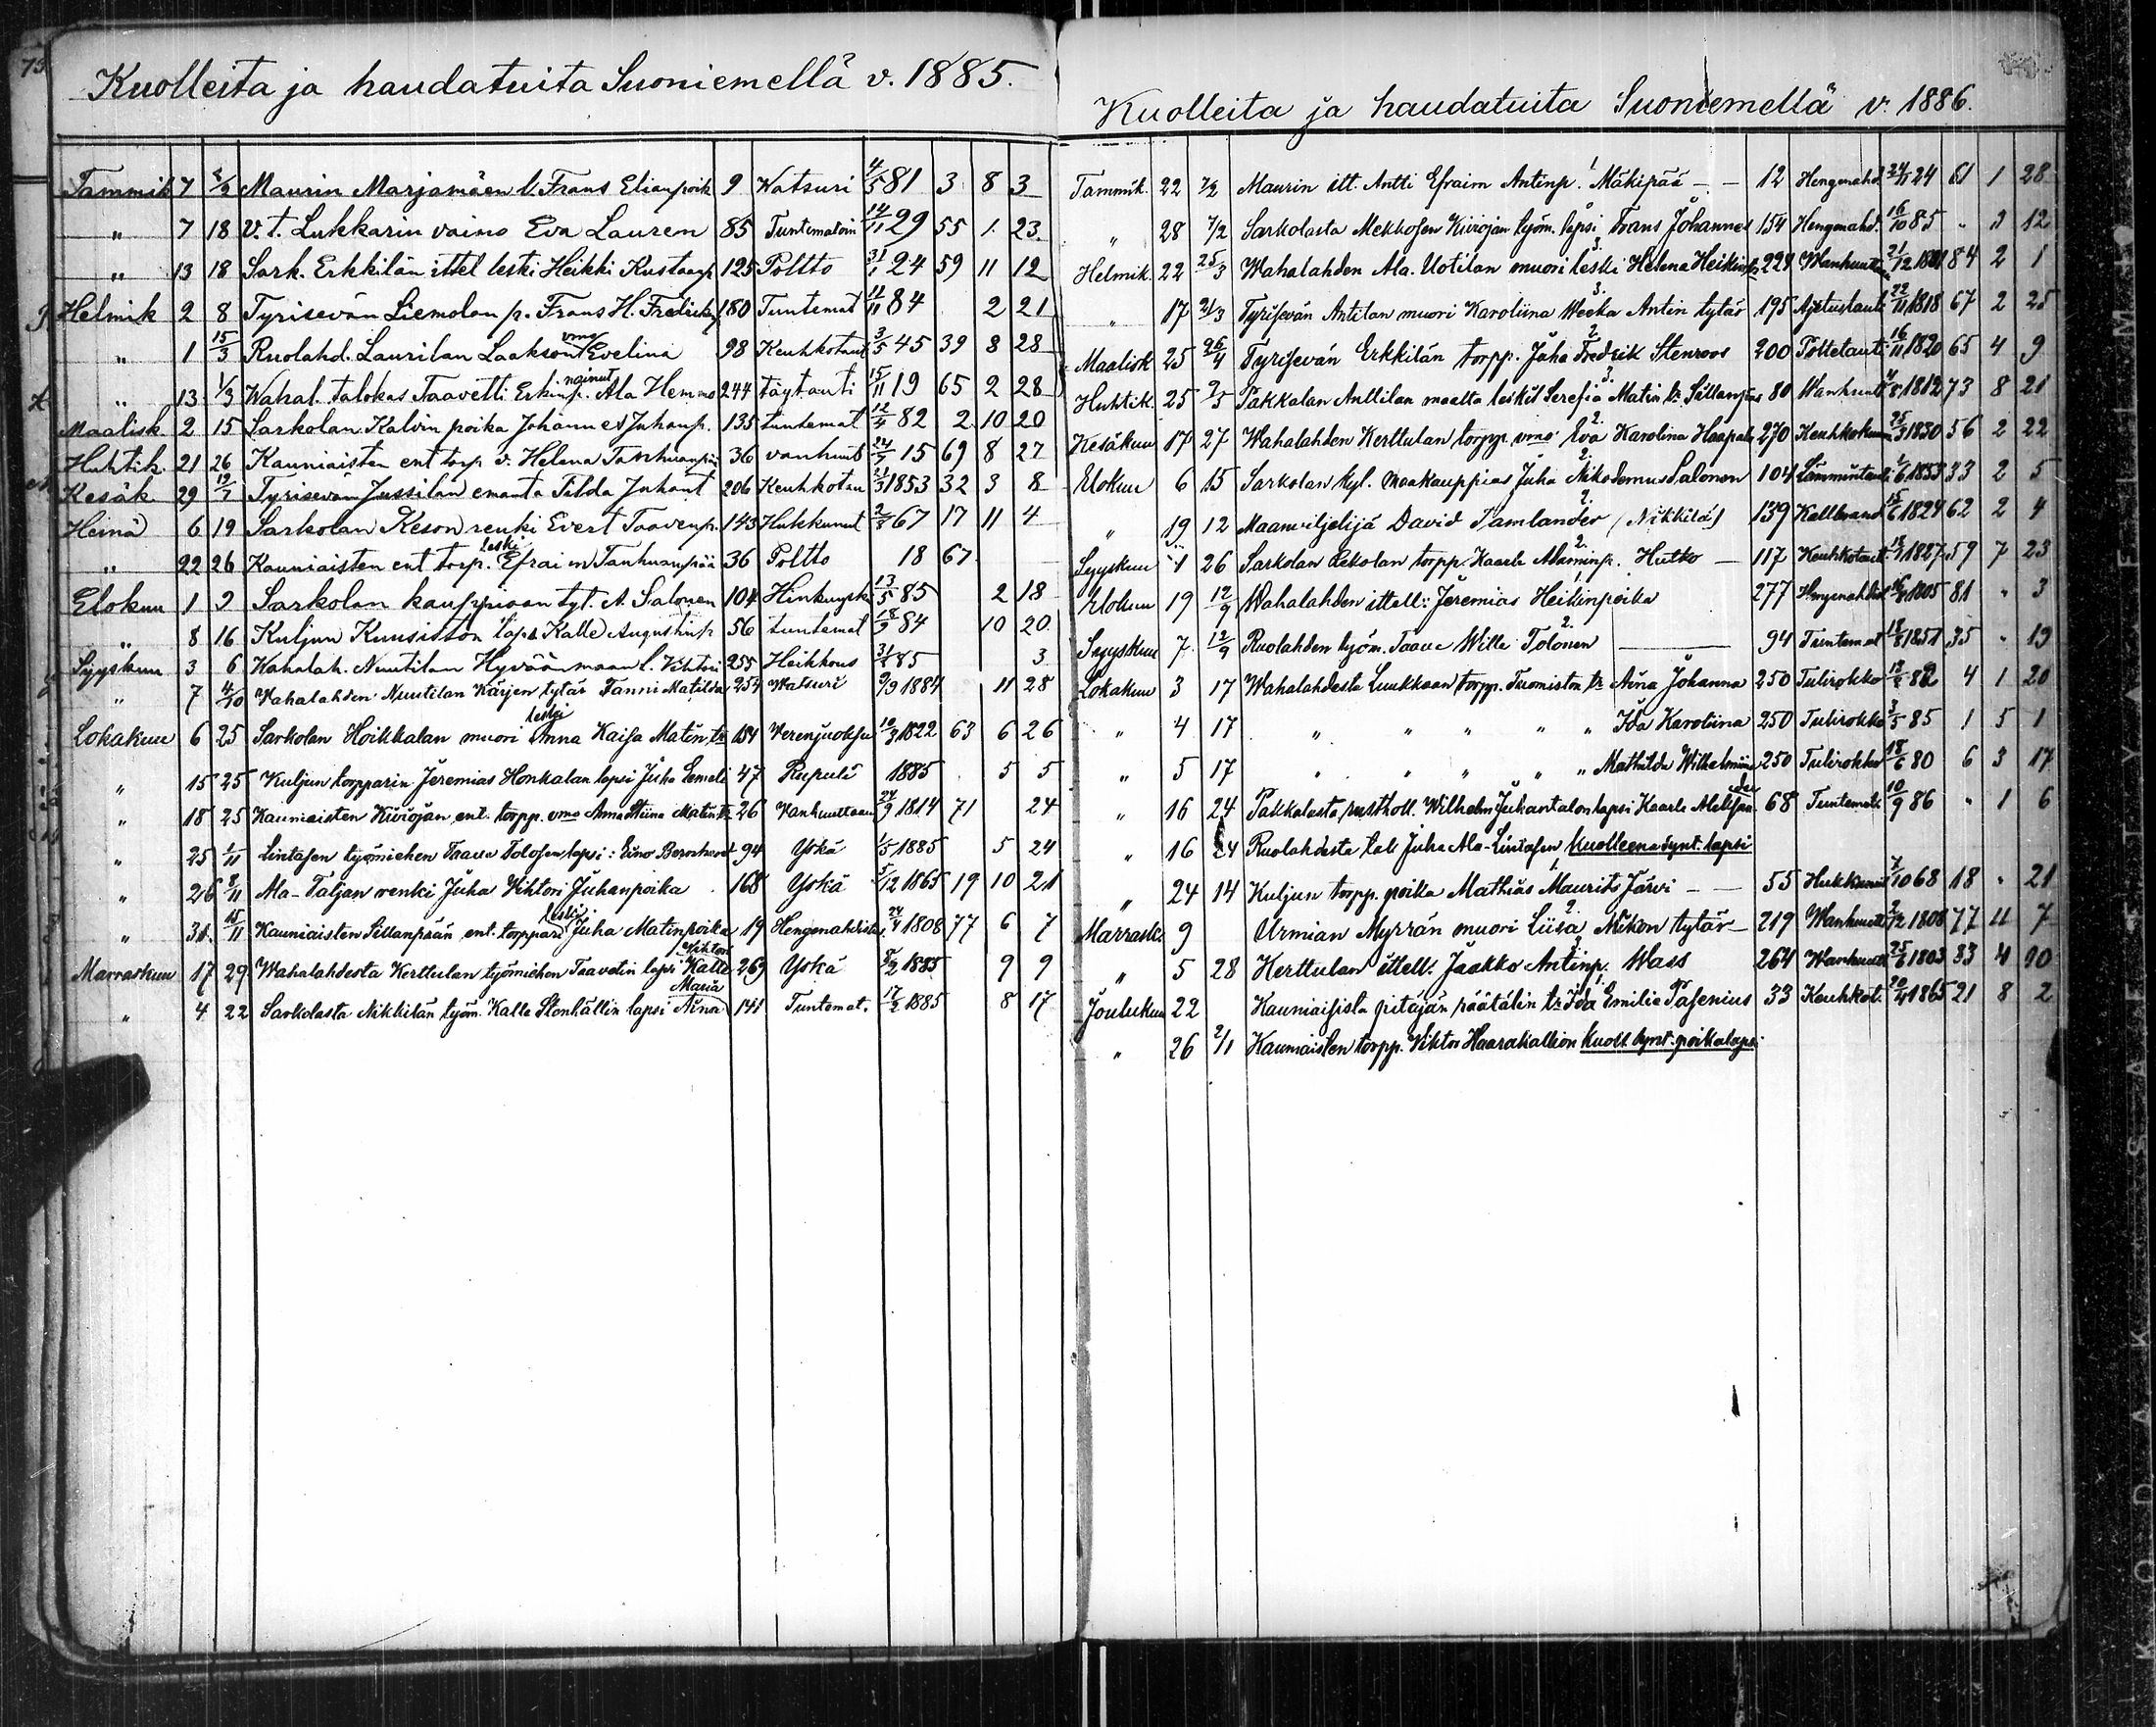 73
Kuolleita ja haudatuita Suoniemellä v. 1885.
Tammik 7 2/2 Maurin Marjamäen l. Frans Elianpoik 9 Watsuri 4/5 81 3 8 3
" 7 18 V. t. Lukkarin vaimo Eva Lauren 85 Tuntematoin 14/11 29 55 1 23.
" 13 18 Sark. Erkkilän ittel leski Heikki Kustaap 125 Poltto 31/1 24 59 11 12
Helmik 2 8 Tyrisevän Liemolan p. Frans H. Fredrikp 180 Tuntemat 11/11 84 2 21
" 1 15/3 Ruolahd. Laurilan Laakson vmo Evelina 98 Keuhkotaut 3/5 45 39 8 28
" 13 1/3 Wahal. talokas Taavetti Erkinp. nainut Ala Hemmo 244 Täytauti 15/11 19 65 2 28
Maalisk. 2 15 Sarkolan Kalvin poika Johannes Juhanp. 135 tuntemat 12/4 82 2 10 20
Huhtik. 21 26 Kauniaisten ent torp v. Helena Tanhuanpää 36 vanhuus 24/7 15 69 8 27
Kesäk. 29 12/7 Tyrisevän Jussilan emäntä Tilda Juhant 206 Keuhkotau 21/3 1853 32 3 8
Heinä 6 19 Sarkolan Keson renki Evert Taavenp. 143 Hukkunut 2/8 67 17 11 4
" 22 26 Kauniaisten ent torp. leski Efraim Tanhuanpää 36 Poltto 18 67
Elokuu 1 9 Sarkolan kauppiaan tyt. A. Salonen 104 Hinkuyskä 13/5 85 2 18
" 8 16 Kuljun Kuusiston laps Kalle Augustinp 56 tuntemat 18/9 84 10 20
Syyskuu 3 6 Wahalah. Nuutilan Hyväänmaan l. Vihtori 255 Heikkous 31/8 85 3
" 7 4/10 Wahalahden Nuutilan Kärjen tytär Fanni Matilda 254 Watsuri 9/9 1884 11 28
Lokakuu 6 25 Sarkolan Hoikkalan muori leski Anna Kaisa Matin tr 154 Verenjuoksu 10/3 1822 63 6 26
" 15 25 Kuljun torpparin Jeremias Honkalan lapsi Juho Eemeli 47 Rupuli 1885 5 5
" 18 25 Kauniaisten Kiviojan ent. torpp. vmo Anna Stiina Matin tr 26 Vanhuuttaan 24/9 1814 71 24
" 25 1/11 Lintasen työmiehen Taave Tolosen lapsi: Eino 94 Yskä 1/5 1885 5 24
" 26 8/11 Ala-Taljan renki Juha Vihtori Juhanpoika 168 Yskä 5/12 1865 19 10 21
" 31. 15/11 Kauniaisten Sillanpään ent. torppari leski Juha Matinpoika 19 Hengenahdistus 24/4 1808 77 6 7
Marraskuu 17 29 Wahalahdesta Kerttulan työmiehen Taavetin lapsi Kalle Vihtori 269 Yskä 8/2 1885 9 9
" 4 22 Sarkolasta Nikkilän työm. Kalle Stenhällin lapsi Aina Maria 141 Tuntemat. 17/2 1885 8 17
Kuolleita ja haudatuita Suoniemellä v. 1886.
Tammik. 22 7/2 Maurin itt. Antti Efraim Antinp. 1 Mäkipää — 12 Hengenahd. 24/11 24 61 1 28
" 28 7/2 Sarkolasta Mekkosen Kiviojan työm. lapsi Frans Johannes 154 Hengenahd. 16/10 85 " 3 12
Helmik. 22 25/3 Wahalahden Ala. Uotilan muori leski 3. Helena Heikintr 224 Wanhuutt. 21/12 1801 84 2 1
" 17 21/3 Tyrisevän Antilan muori Karoliina 3. Antin tytär 195 Ajetustauti 22/11 1818 67 2 25
Maalisk 25 26/4 Tyrisevän Erkkilän torpp. Juha 2. Fredrik Stenroos 200 Polttotauti 16/11 1820 65 4 9
Huhtik. 25 2/5 Pakkalan Anttilan maalta leski 3. Serefia Matin tr. Sillanpää 80 Wanhuus 4/8 1812 73 8 21
Kesäkuu 17 27 Wahalahden Kerttulan torpp. vmo 2. Eva Karolina Haapala 270 Keuhkokuume 25/3 1830 56 2 22
Elokuu 6 15 Sarkolan kyl. Maakauppias Juha 2. Nikodemus Salonen 104 Lämmintauti 1/6 1853 33 2 5
" 19 12 Maanviljelijä David Tamlander 2. (Nikkilä) 139 Kallbrand 15/6 1824 62 2 4
Syyskuu 1 26 Sarkolan Eskolan torpp. Kaarle 2. Adaminp. Hutko — 117 Keuhkotaut 18/1 1827 59 7 23
Elokuu 19 12/9 Wahalahden ittell: Jeremias Heikinpoika 277 Hengenahdist 16/8 1805 81 " 3
Syyskuu 7 12/9 Ruolahden työm. Taave Wille 2. Tolonen — 94 Tuntemat 18/8 1851 35 " 19
Lokakuu 3 17 Wahalahdesta Luukkaan torpp. Tuomiston tr Aina Johanna 250 Tulirokko 13/8 82 4 1 20
" 4 17 " " " " " Ida Karoliina 250 Tulirokko 3/5 85 1 5 1
" 5 17 " " " " " Mathilda Wilhelmiina 250 Tulirokko 18/6 80 6 3 17
" 16 24 Pakkalasta rustholl. Wilhelm Juhantalon lapsi Kaarle 68 Tuntemat. 10/9 86 " 1 6
" 16 24 Ruolahdesta tal. Juha Ala-Lintasen kuolleena synt. lapsi
" 24 14 Kuljun torpp. poika Mathias 1 Maurits Järvi — — 55 Hukkunut 3/10 68 18 " 21
Marrask. 9 Urmian Myrrän muori Liisa 2. Mikon tytär — 219 Wanhuutt 2/12 1808 77 11 7
" 5 28 Kerttulan ittell. Jaakko Antinp. 3. Wass 264 Wanhuutt 25/6 1803 83 4 20
Joulukuu 22 Kauniaisista pitäjän räätälin tr Ida 1. Emilia Pasenius 33 Keuhkot. 20/4 1865 21 8 2
" 26 2/1 Kauniaisten torpp. Viktor Haarakallion kuoll. synt. poikalapsi